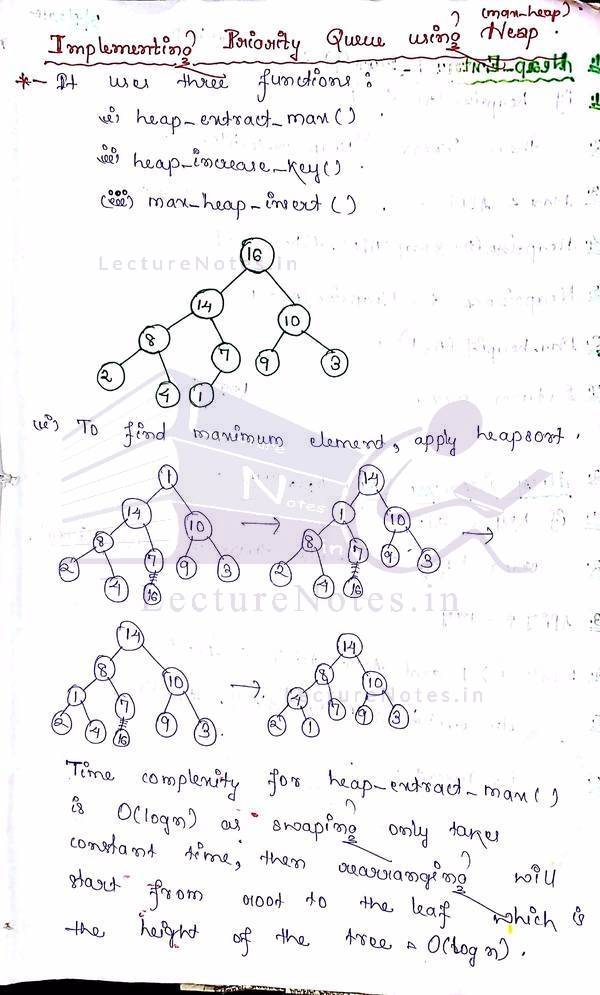 (max-heap)
Implementing Priority Queue using Heap.
*- It uses three functions:
(i) heap_extract_max()
(ii) heap_increase_key()
(iii) max_heap_insert()
LectureNotes.in
16
14
8 10
7
2 9 3
4 1
(i) To find maximum element, apply heapsort.
1 14
14 1
10 10
8 8
2 7 9 3 2 7 9 3
4 16 4 16
Notes
in
LectureNotes.in
14 14
8 8
1 10 4 10
LectureNotes.in
2 4 7 9 3 2 1 7 9 3
16
Time complexity for heap_extract_max()
is O(logn) as swaping only takes
constant time, then rearranging will
start from root to the leaf which is
the height of the tree = O(log n).